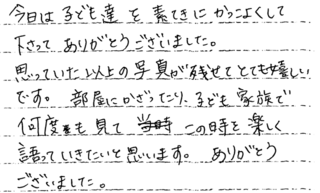 今日は子ども達を素てきにかっこよくして
下さってありがとうございました。
思っていた以上の写真が残せてとても嬉しい
です。部屋にかざったり、子ども家族で
何度も見てこの時を楽しく
語っていきたいと思います。ありがとう
ございました。